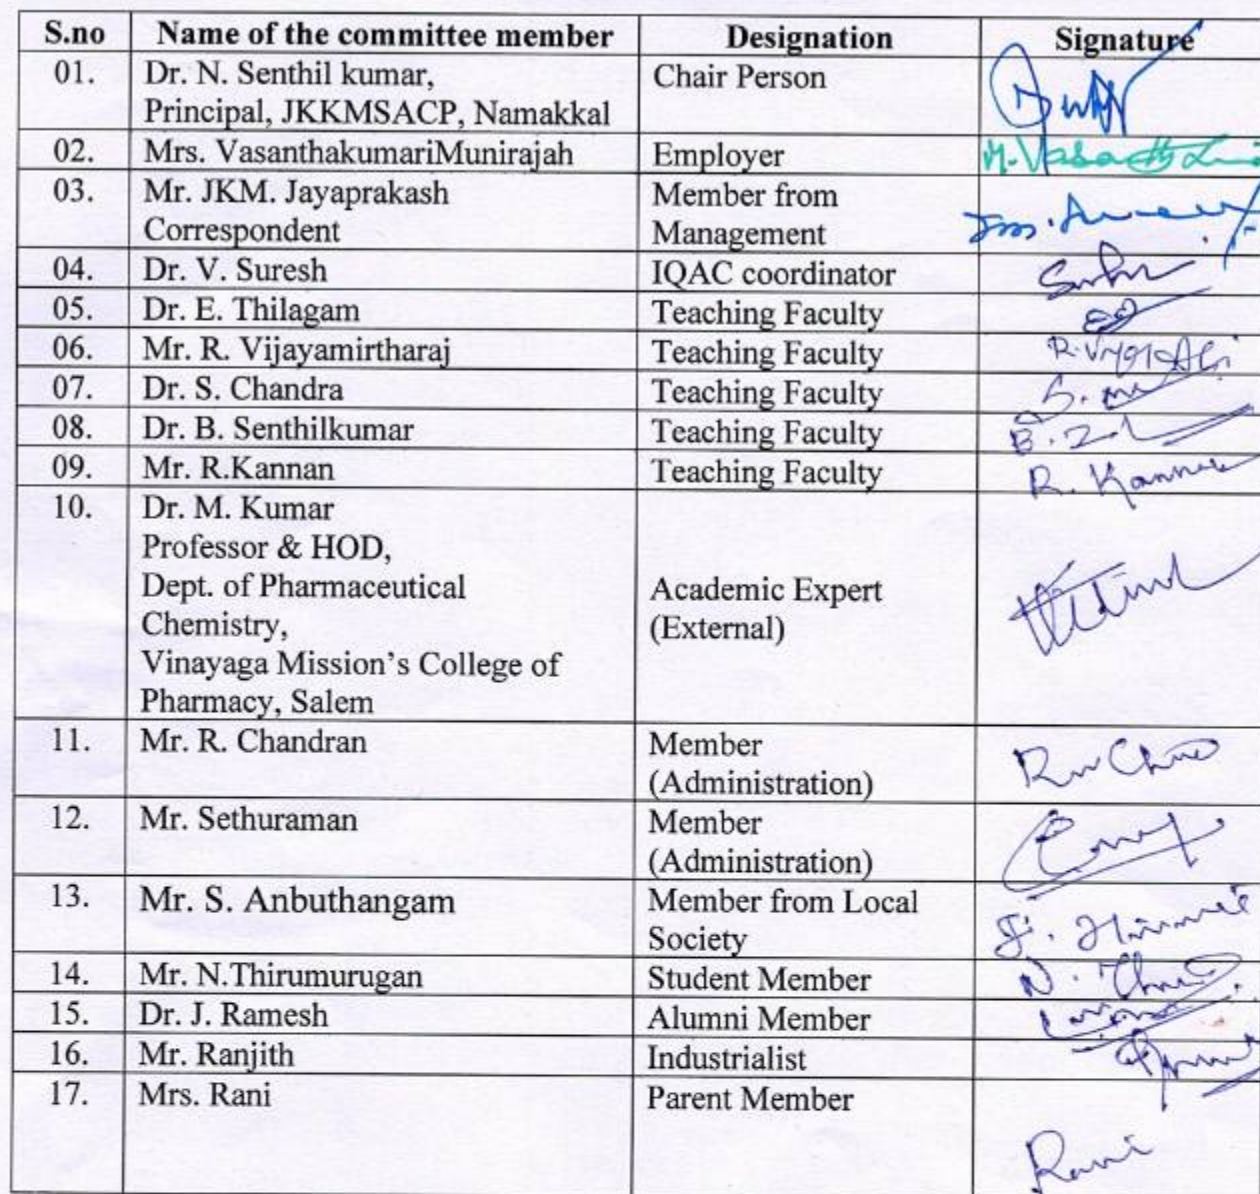 S.no Name of the committee member Designation Signature
01. Dr. N. Senthil kumar, Chair Person
Principal, JKKMSACP, Namakkal
02. Mrs. VasanthakumariMunirajah Employer
03. Mr. JKM. Jayaprakash Member from
Correspondent Management
04. Dr. V. Suresh IQAC coordinator
05. Dr. E. Thilagam Teaching Faculty
06. Mr. R. Vijayamirtharaj Teaching Faculty
07. Dr. S. Chandra Teaching Faculty
08. Dr. B. Senthilkumar Teaching Faculty
09. Mr. R.Kannan Teaching Faculty R. Kannan
10. Dr. M. Kumar
Professor & HOD,
Dept. of Pharmaceutical Academic Expert
Chemistry, (External)
Vinayaga Mission’s College of
Pharmacy, Salem
11. Mr. R. Chandran Member
(Administration)
12. Mr. Sethuraman Member
(Administration)
13. Mr. S. Anbuthangam Member from Local
Society
14. Mr. N.Thirumurugan Student Member
15. Dr. J. Ramesh Alumni Member
16. Mr. Ranjith Industrialist
17. Mrs. Rani Parent Member
Rani